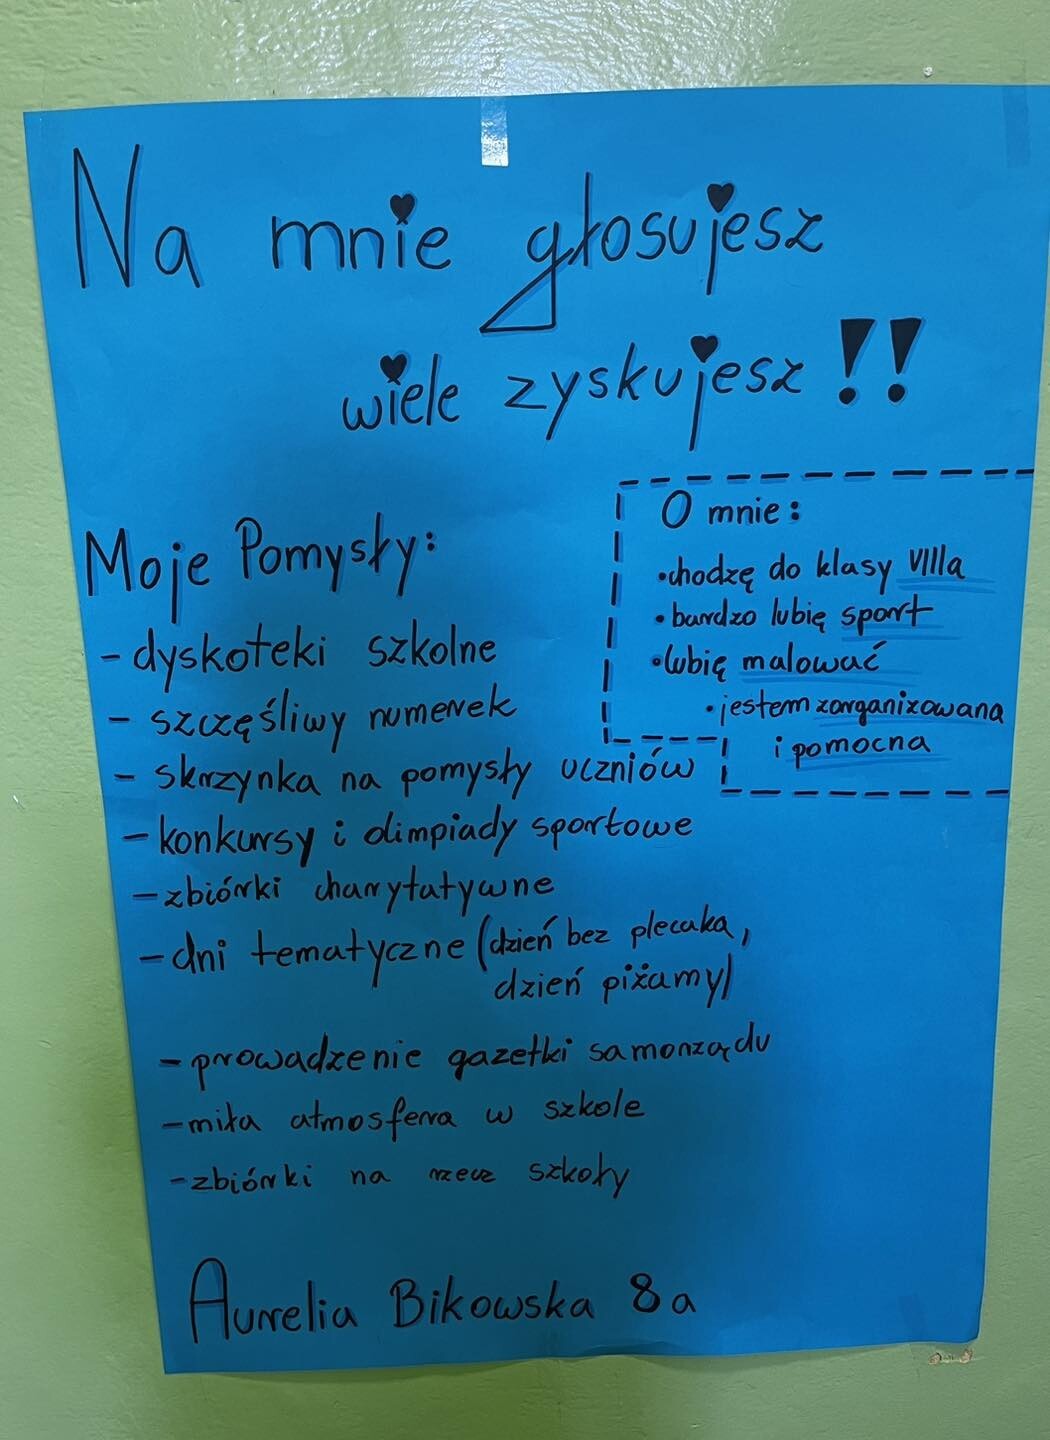 Na mnie głosujesz
wiele zyskujesz !!
O mnie:
•chodzę do klasy VIIIa
•bardzo lubię sport
•lubię malować
•jestem zorganizowana
i pomocna
Moje Pomysły:
- dyskoteki szkolne
- szczęśliwy numerek
- skrzynka na pomysły uczniów
- konkursy i olimpiady sportowe
- zbiórki charytatywne
- dni tematyczne (dzień bez plecaka,
dzień piżamy)
- prowadzenie gazetki samorządu
- miła atmosfera w szkole
- zbiórki na rzecz szkoły
Aurelia Bikowska 8a